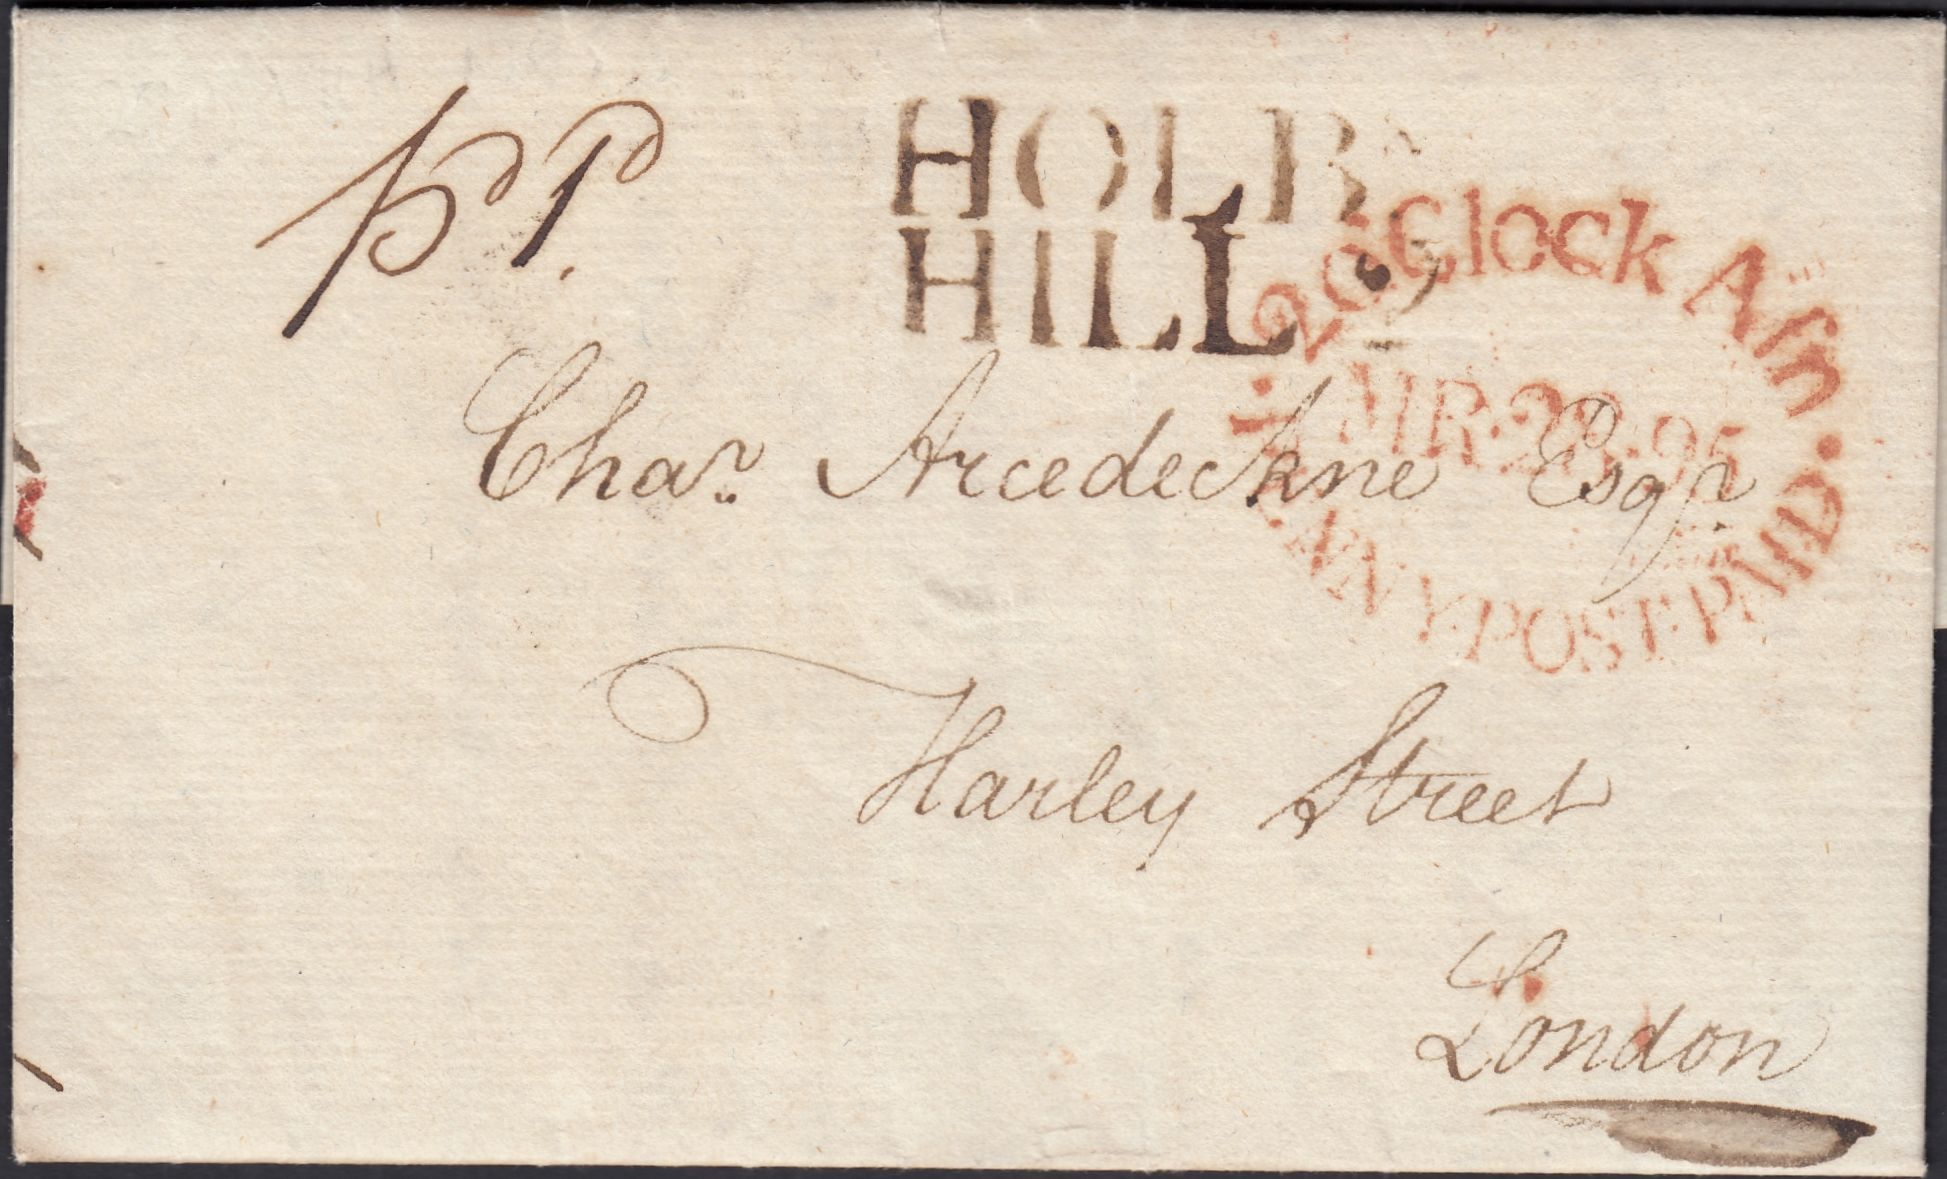 pd 1d.
HOLBn
HILL
2o'Clock Afn
MR·28·95
1. PENNY·POST·PAID
Chas. Arcedeckne Esqr.
Harley Street
London